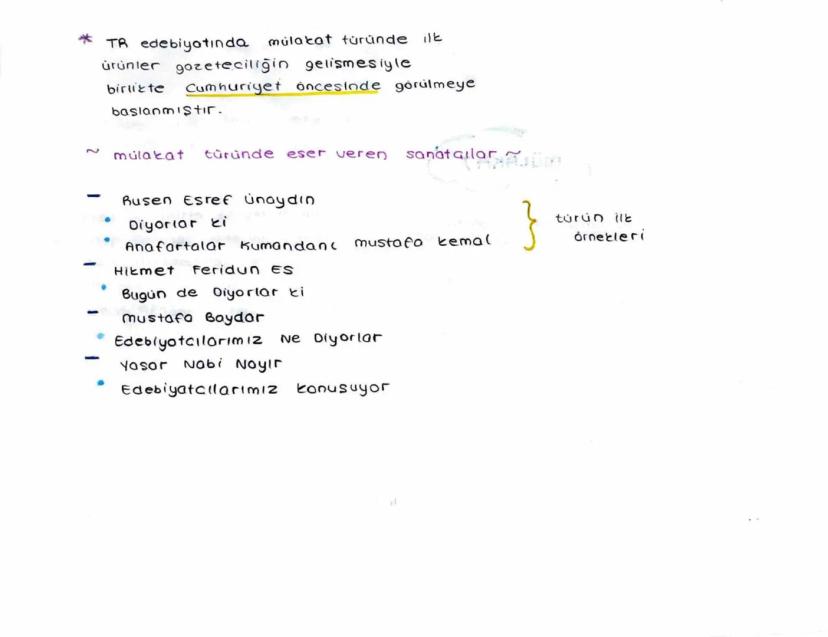 * TR edebiyatında mülakat türünde ilk
ürünler gazeteciliğin gelismesiyle
birlikte Cumhuriyet öncesinde görülmeye
baslanmıştır.
~ mülakat türünde eser veren sanatçılar ~
- Rusen Esref Ünaydın
• Diyorlar ki
• Anafartalar Kumandanı mustafa kemal
} türün ilk
örnekleri
- Hikmet Feridun ES
• Bugün de Diyorlar ki
- mustafa Baydar
• Edebiyatcılarımız Ne Diyorlar
- Yasar Nabi Nayır
• Edebiyatcılarımız konusuyor